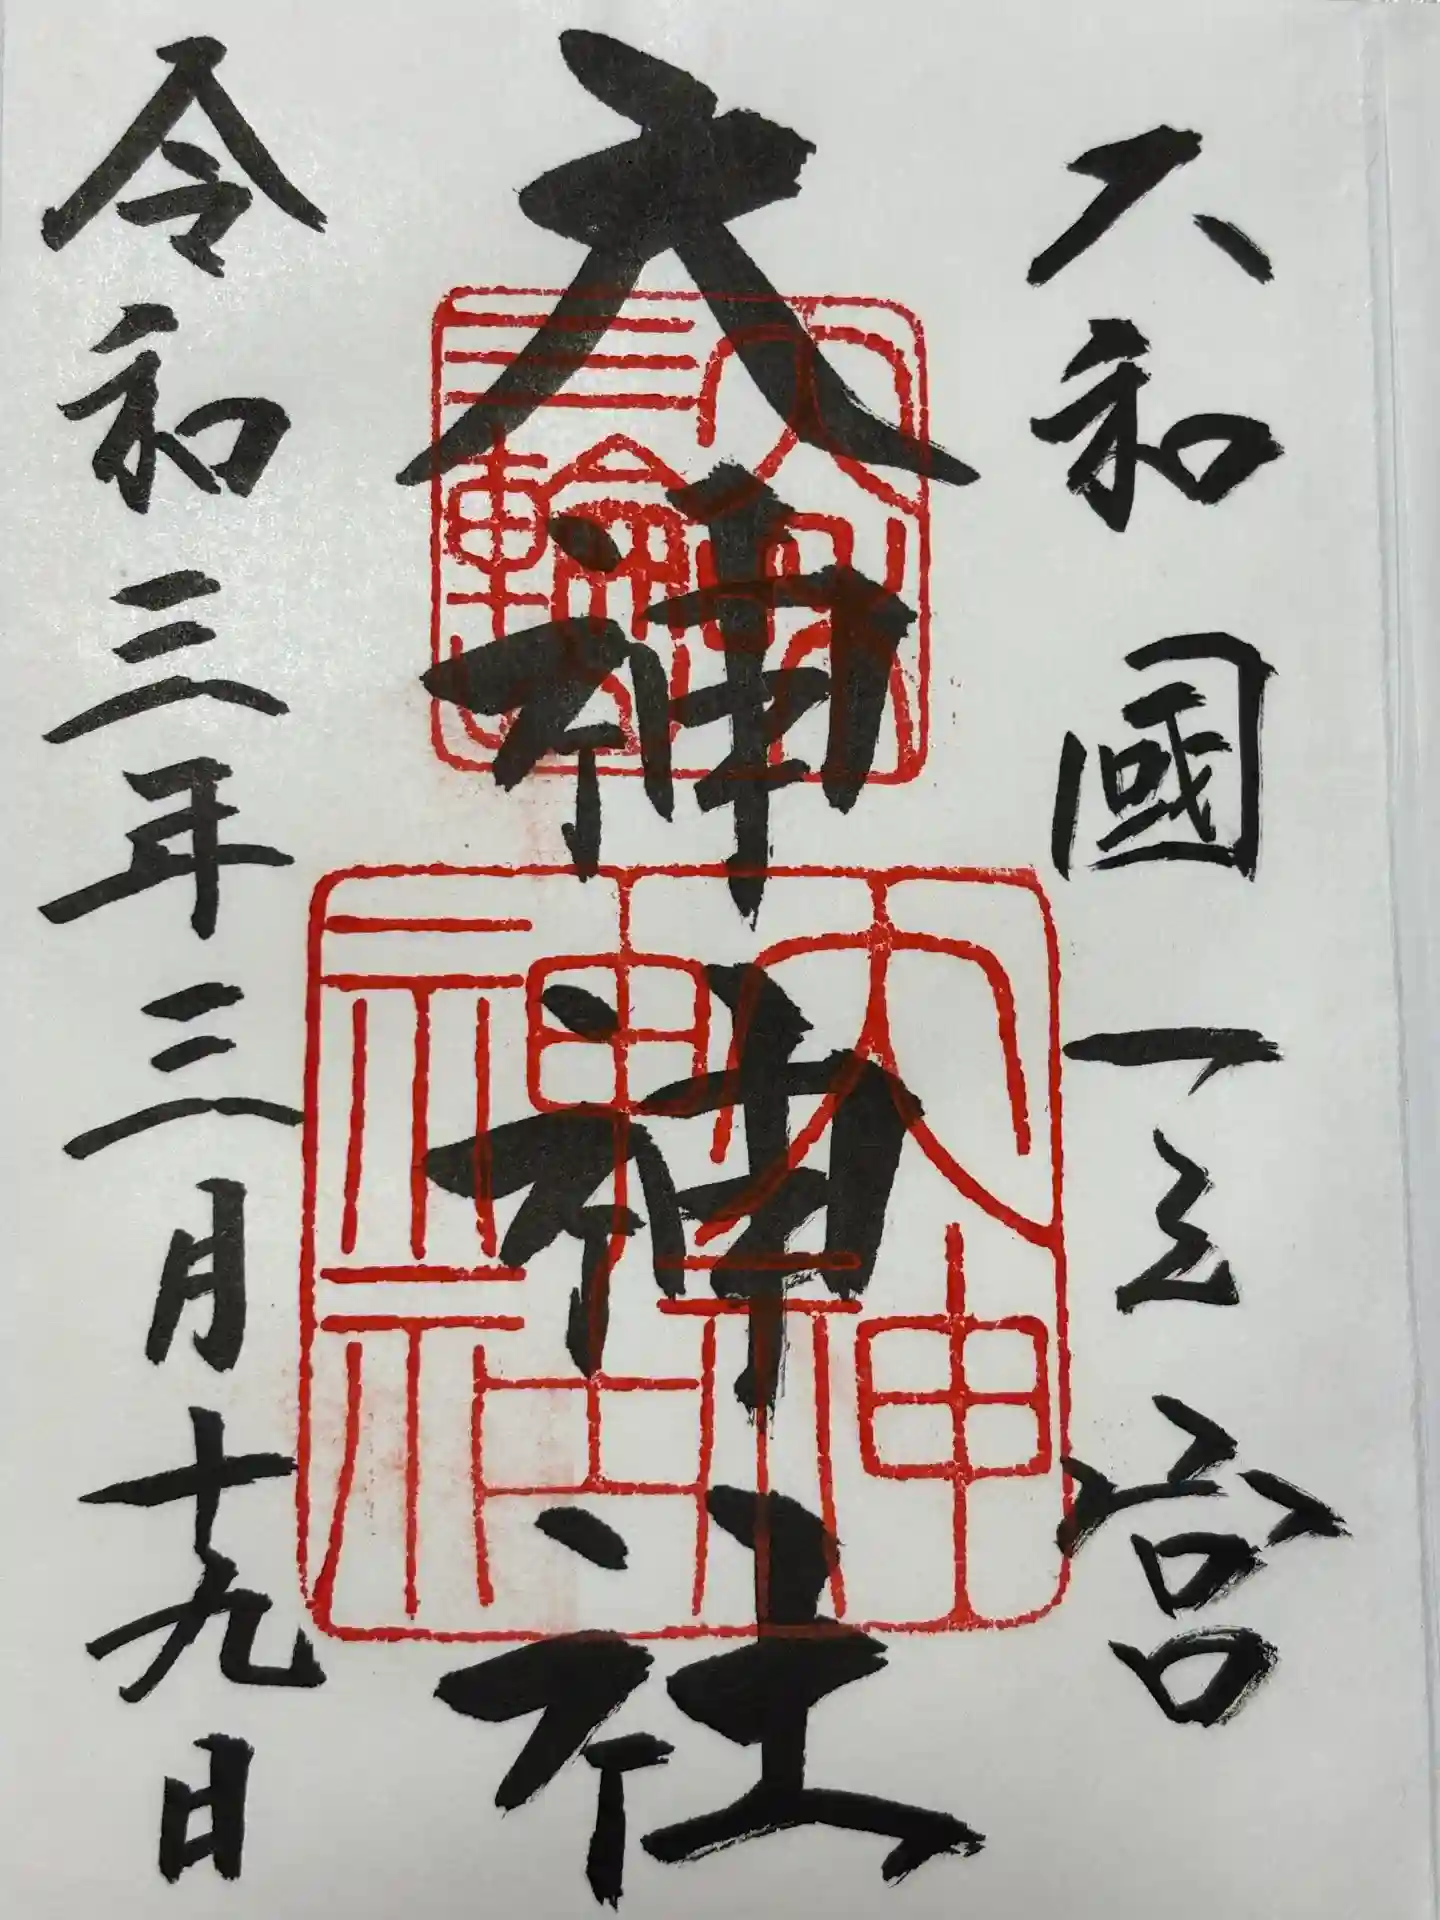 大和國一之宮
大神神社
令和三年三月十九日
大神
神社